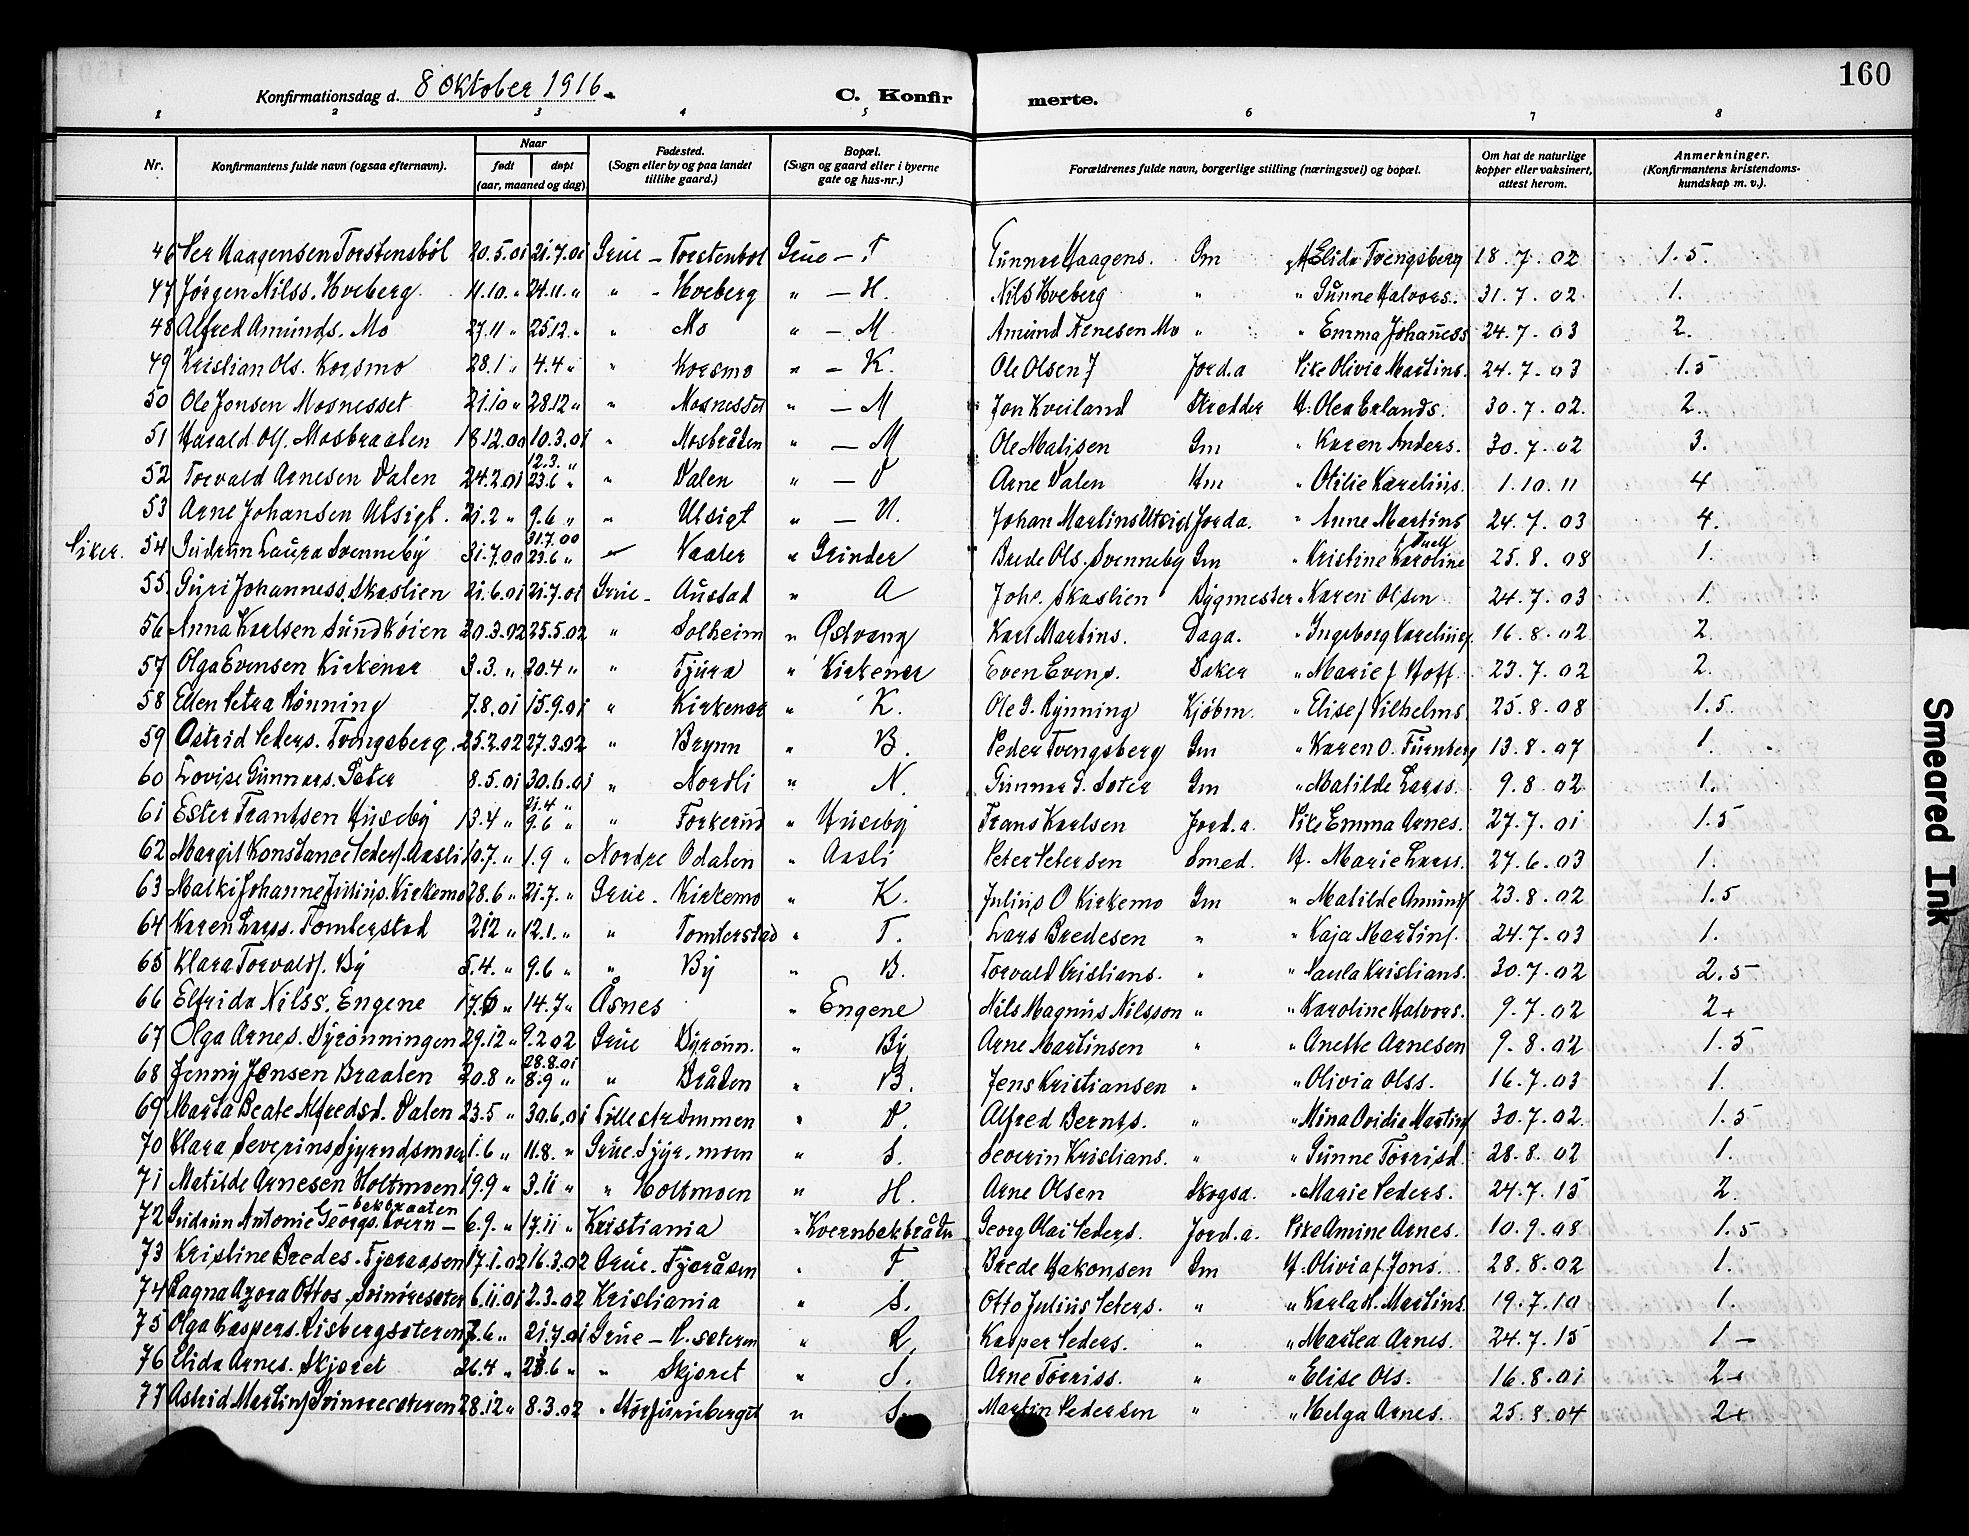 160
Konfirmationsdag d. 8 Oktober 1916.
C. Konfirmerte.
1 2 3 4 5 6 7 8
Nr. Konfirmantens fulde navn (ogsaa efternavn). Naar født døpt (aar, maaned og dag). Fødested. (Sogn eller by og paa landet tillike gaard.) Bopæl. (Sogn og gaard eller i byerne gate og hus-nr.) Forældrenes fulde navn, borgerlige stilling (næringsvei) og bopæl. Om hat de naturlige kopper eller vaksinert, attest herom. Anmerkninger. (Konfirmantens kristendoms-kundskap m. v.).
46 Per Haagensen Torstensbøl 20.5.01 21.7.01 Grue – Torstenbøl Grue – T Gunnar Haagens. Gm H Elida Tvengsberg 18.7.02 1.5.
47 Jørgen Nilss. Hveberg 11.10. „ 24.11. „ „ - Hveberg „ – H. Nils Hveberg „ „ Gunne Halvors. 31.7.02. 1.
48 Alfred Amunds. Mo 27.11 „ 25.12. „ „ Mo „ – M. Amund Arnesen Mo „ „ Emma Johaness 24.7.03 2.
49 Kristian Ols. Korsmo 28.1 „ 4.4 „ „ Korsmo „ – K. Ole Olsen Jord.a Pike Olivia Martins. 24.7.03 1.5
50 Ole Jonsen Mosnesset 21.10 „ 28.12 „ „ Mosnesset „ – M Jon Kveiland Skredder H. Olea Erlands. 30.7.02. 2.
51 Harald Ols. Mosbraaten 18.12.00 10.3.01 „ Mosbråten „ – M Ole Matisen Gm „ Karen Anders. 30.7.02 3.
52 Torvald Arnesen Dalen 24.2.01 12.3. „ 23.6 „ „ Dalen „ – D Arne Dalen Hm „ Otilie Karelius. 1.10.11 4
53 Arne Johansen Utsigt. 21.2 „ 9.6 „ „ Utsigt „ – U. Johan Martins Utsigt Jorda. „ Anne Martins 24.7.03 4.
Piker. 54 Gudrun Laura Svenneby 31.7.00 31.7.00 23.6 „ „ Vaaler „ Grinder Brede Ols. Svenneby Gm „ Kristine Karoline 25.8.08 1.
55. Guri Johanness. Skaslien 21.6.01 21.7.01 Grue – Austad „ A Johs. Skaslien Bygmester „ Karen Olsen 24.7.03 1.
56 Anna Karlsen Sundkøien 30.3.02 25.5.02 „ Solheim „ Østvang Karl Martins. Daga. „ Ingeborg Karelius. 16.8.02 2.
57 Olga Evensen Kirkenær 3.3. „ 20.4 „ „ Tjura „ Kirkenær Even Evens. Baker „ Marie f Hoff. 23.7.02 2.
58 Ellen Petra Rønning 7.8.01 15.9.01 „ Kirkenær „ K. Ole G. Rønning Kjøbm. „ Elise f Vilhelms. 25.8.08 1.5.
59 Astrid Peders. Tvengsberg. 25.2.02 27.3.02 „ Brynn „ B. Peder Tvengsberg Gm „ Karen O. Furuberg 13.8.07 1.
60 Lovise Gunnars. Sæter 8.5.01 30.6.01 „ Nordli „ N. Gunnar G. Sæter Gm „ Matilde Larss. 9.8.02 1.
61 Ester Frantsen Huseby 13.4 „ 21.4 „ 9.6 „ „ Torkerud „ Huseby Frans Karlsen Jord.a. Pike Emma Arnes. 27.7.01 1.5
62 Margit Konstance Peders. Aasli 10.7. „ 1.9 „ Nordre Odalen „ Aasli Peter Petersen Smed. H. Marie Larss. 27.6.03 1.
63 Malki Johanne Julius. Kirkemo 28.6 „ 21.7. „ Grue. Kirkemo „ K. Julius O Kirkemo Gm „ Matilde Amunds 23.8.02 1.5
64 Karen Larss. Tomterstad 2.12 „ 12.1. „ „ Tomterstad „ T. Lars Bredesen „ „ Kaja Martins. 24.7.03 1.
65 Klara Torvalds. By 5.4. „ 9.6 „ „ By „ B. Torvald Kristians. „ „ Paula Kristians. 30.7.02 2.5
66 Elfrida Nilss. Engene 17.6 „ 14.7 „ Åsnes „ Engene Nils Magnus Nilsson „ „ Karoline Halvors. 9.7.02 2+
67 Olga Arnes. Byrønningen 29.12 „ 9.2.02 Grue Byrønn. „ By Arne Martinsen „ „ Anette Arnesen 9.8.02 1.5
68 Jenny Jensen Braaten 20.8 „ 28.8.01 8.9 „ „ Bråten „ B. Jens Kristiansen „ „ Olivia Olss. 16.7.03 1.
69 Marta Beate Alfredsd. Dalen 23.5 „ 30.6.01 Lillestrømmen „ D. Alfred Bernts. „ „ Mina Ovidia Martins 30.7.02. 1.5
70 Klara Severins Gjyrndsmoen 1.6 „ 11.8. „ Grue. Gjyr.moen „ S. Severin Kristians. „ „ Gunne Torrisd. 28.8.02 1.
71 Matilde Arnesen Holtmoen 19.9 „ 3.11 „ „ Holtmoen „ H. Arne Olsen Skogsa. „ Marie Peders. 24.7.15 2.
72 Gudrun Antonie Georgs. Kvern–bekbraaten 6.9. „ 17.11 „ Kristiania „ Kvernbekbråtn Georg Olai Peders. Jord.a. Pike Amine Arnes. 10.9.08 1.5
73 Kristine Bredes. Fjeraasen 17.1.02 16.3.02 Grue. Fjeråsen „ F Brede Hakonsen Gm H. Olivia f. Jons. 28.8.02 1.
74 Ragna Azora Ottos. Svinøresæter 6.11.01 2.3.02 Kristiania „ S. Otto Julius Peters. „ „ Karla H. Martins. 19.7.10 1.
75 Olga Kaspers. Risbergsæteren 7.6 „ 21.7.01 Grue – R. sæteren „ R. Kasper Peders. „ „ Martea Arnes. 24.7.15 1 –
76 Elida Arnes. Skjæret 26.4 „ 23.6 „ „ Skjæret „ S. Arne Torriss. „ „ Elise Ols. 16.8.01 2+
77 Astrid Martins Svinøresæteren 28.12 „ 8.3.02 „ Storfuruberget „ S Martin Pedersen „ „ Helga Arnes. 25.8.04 2+
Smeared Ink